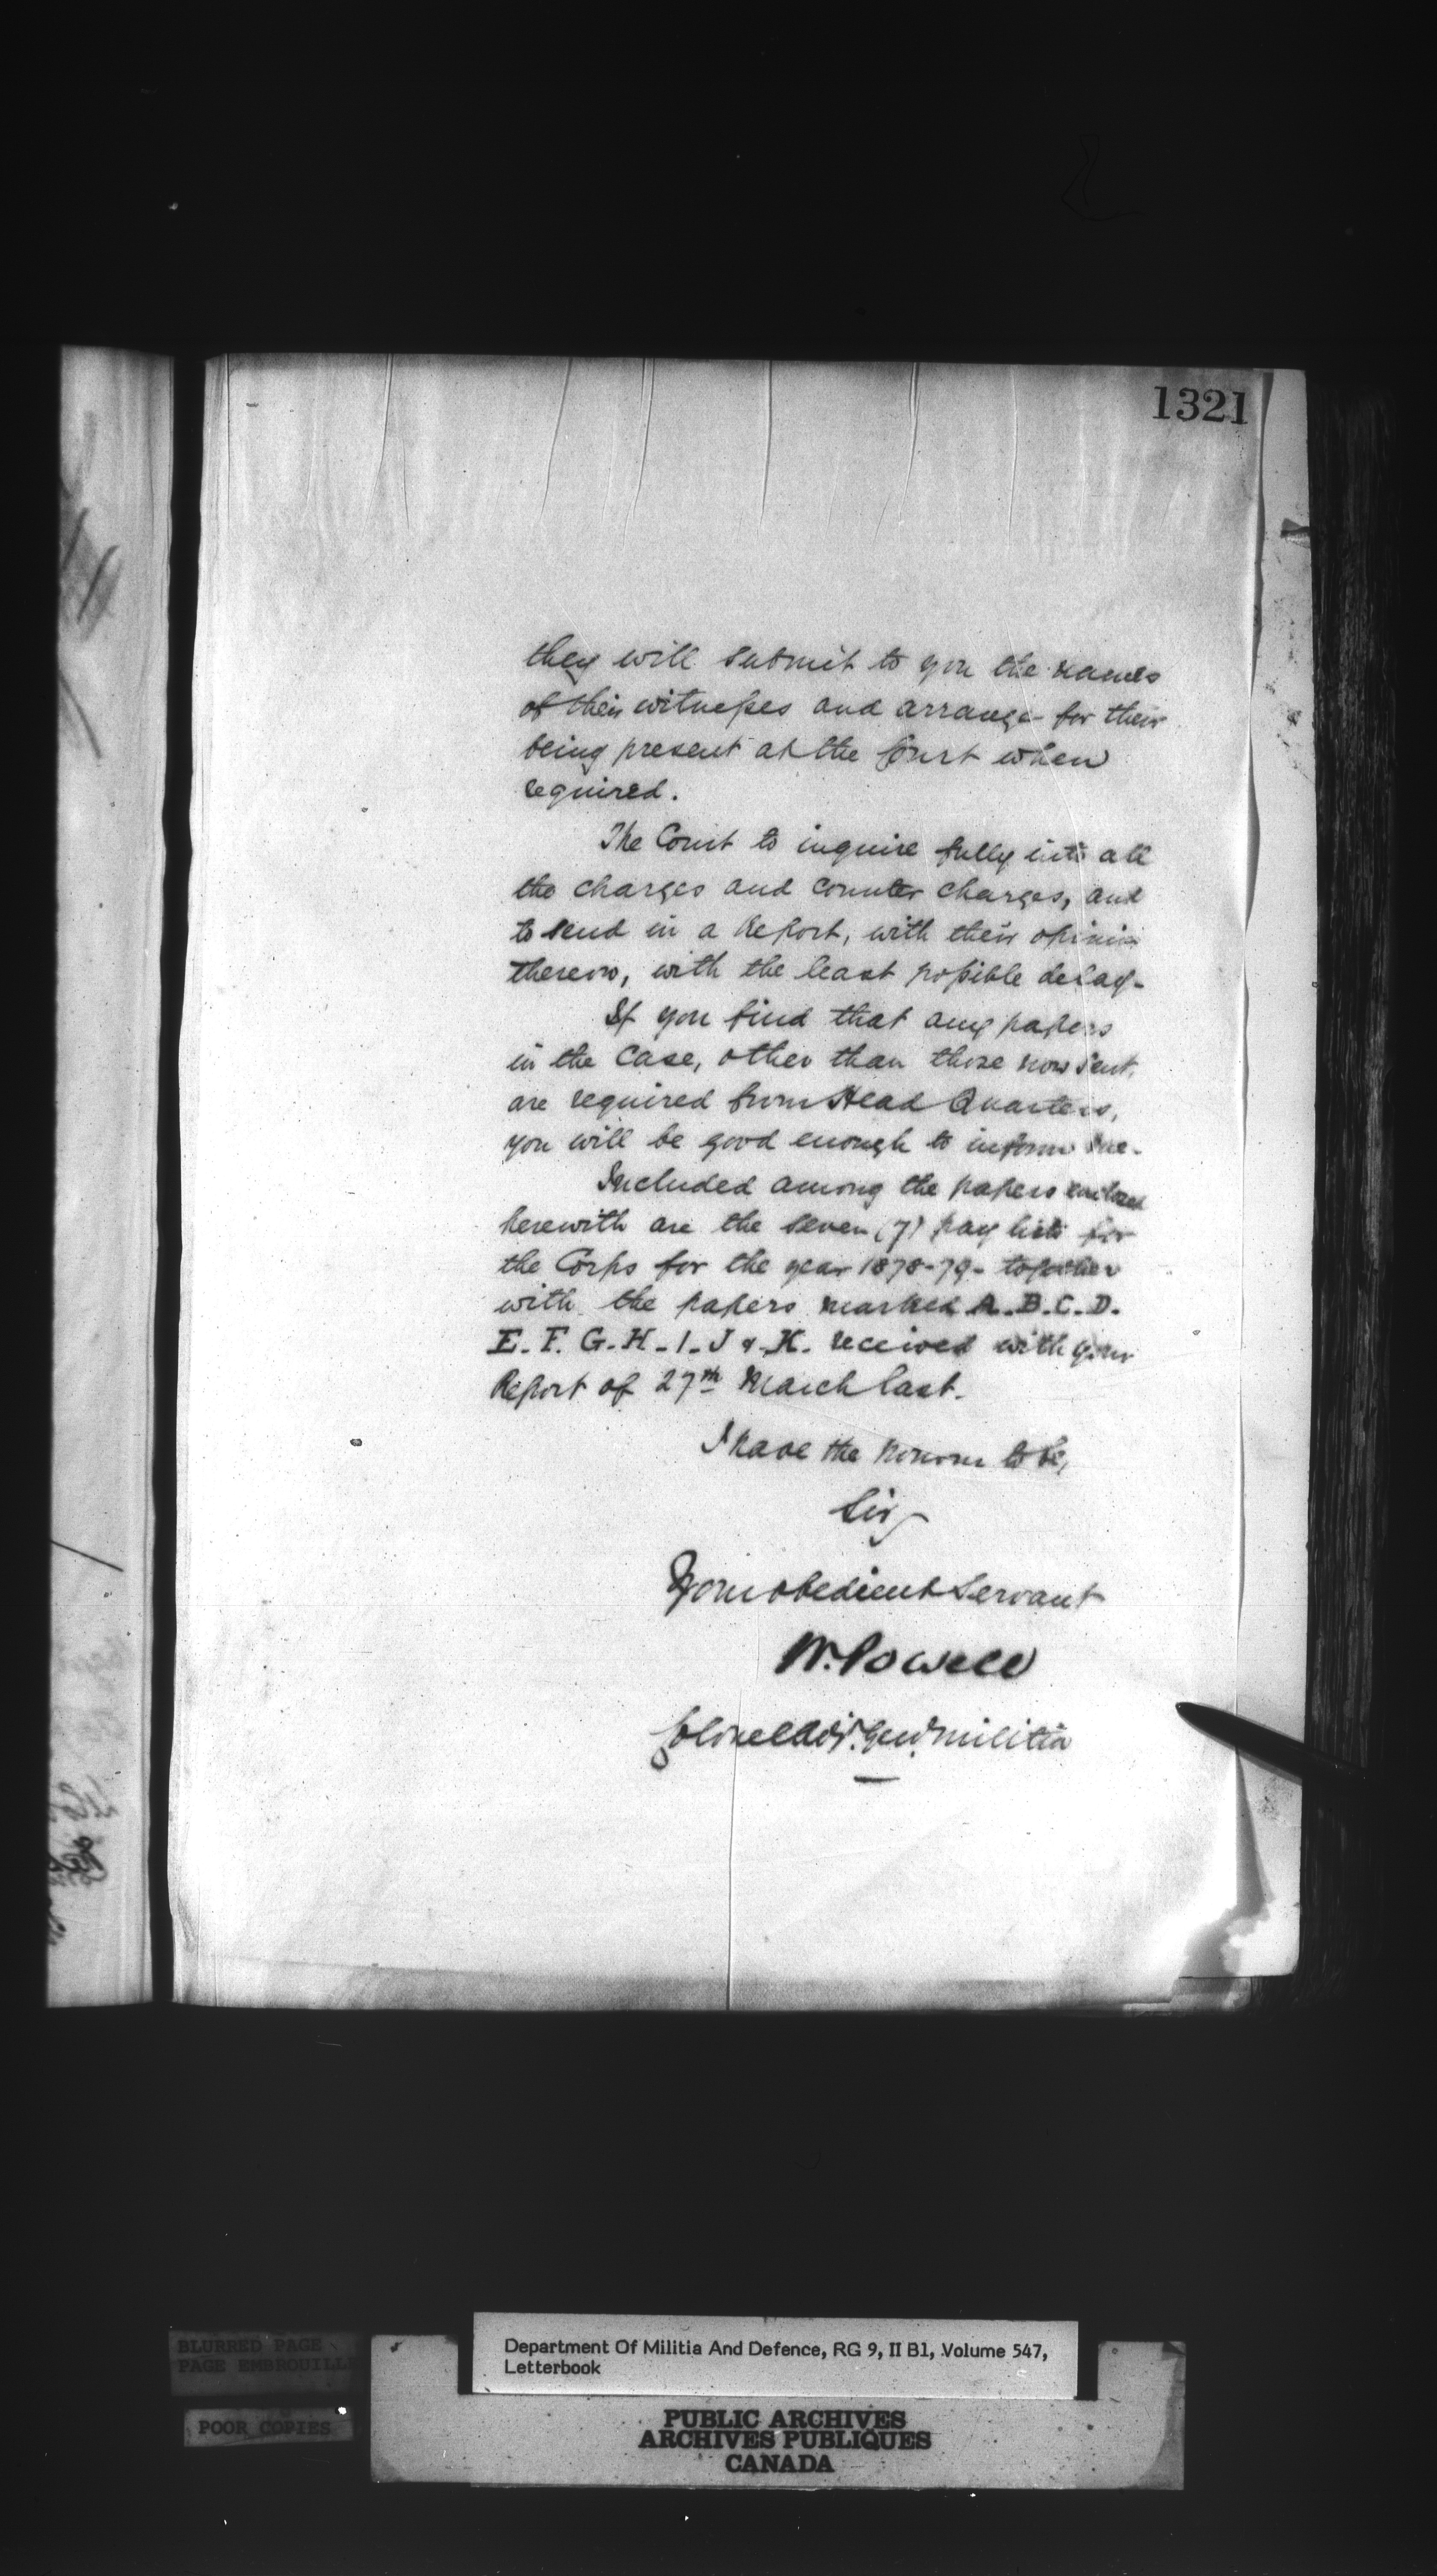 1321
they will submit to you the names
of their witnesses and arrange for their
being present at the Court when
required.
The Court to inquire fully into all
the charges and counter charges, and
to send in a Report, with their opinion
thereon, with the least possible delay.
If you find that any papers
in the case, other than those now sent,
are required from Head Quarters,
you will be good enough to inform me.
Included among the papers enclosed
herewith are the seven (7) pay lists for
the Corps for the year 1878-79 - together
with the papers marked A. B. C. D.
E. F. G. H. I. J & K. received with your
Report of 27th March last.
I have the honour to be,
Sir
Your obedient Servant
W. Powell
Colonel Adj. Genl. Militia
BLURRED PAGE
PAGE EMBROUILLE
POOR COPIES
Department Of Militia And Defence, RG 9, II B1, Volume 547,
Letterbook
PUBLIC ARCHIVES
ARCHIVES PUBLIQUES
CANADA